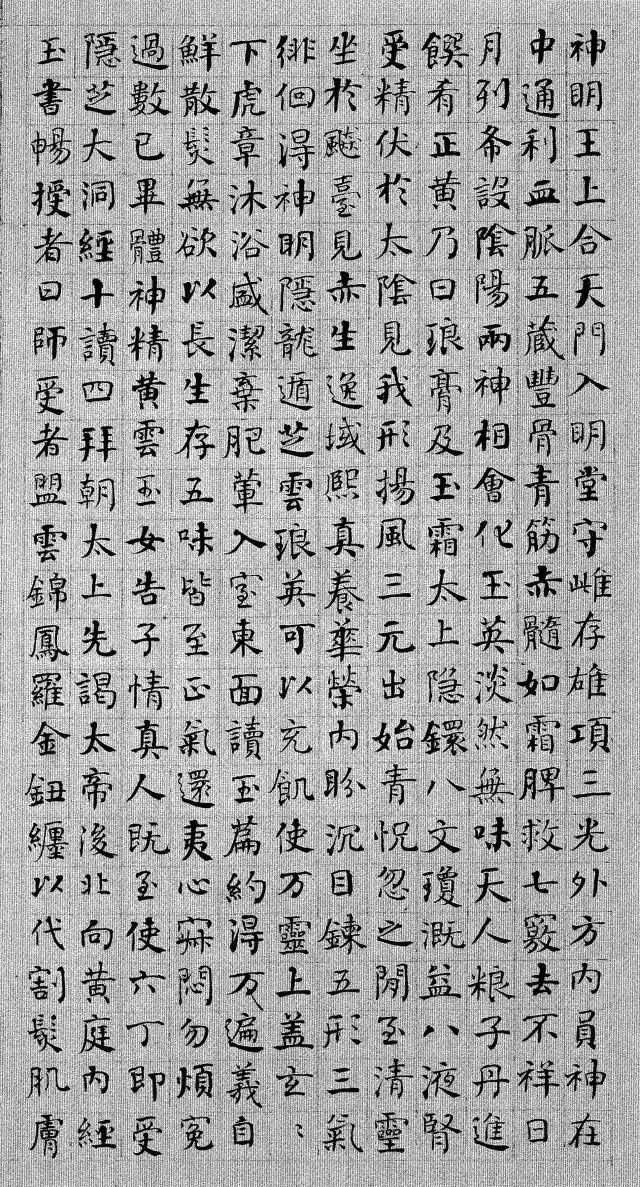 神明王上合天門入明堂守雌存雄項三光外方内員神在
中通利血脈五藏豐骨青筋赤髓如霜脾救七竅去不祥日
月列布設陰陽兩神相會化玉英淡然無味天人粮子丹進
饌肴正黄乃曰琅膏及玉霜太上隐鐶八文瓊溉益八液腎
受精伏於太陰見我形揚風三元出始青怳忽之間至清靈
坐於飈臺見赤生逸域熙真養華榮内盼沉目鍊五形三氣
徘徊得神明隱龍遁芝雲琅英可以充飢使万靈上盖玄ミ
下虎章沐浴盛潔棄肥葷入室東面讀玉篇約得万遍義自
鮮散髮無欲以長生存五味皆至正氣還夷心寂悶勿煩寃
過數已畢體神精黄雲玉女告子情真人既至使六丁即受
隱芝大洞經十讀四拜朝太上先謁太帝後北向黄庭内經
玉書暢授者曰師受者盟雲錦鳳羅金鈕纏以代割髮肌膚